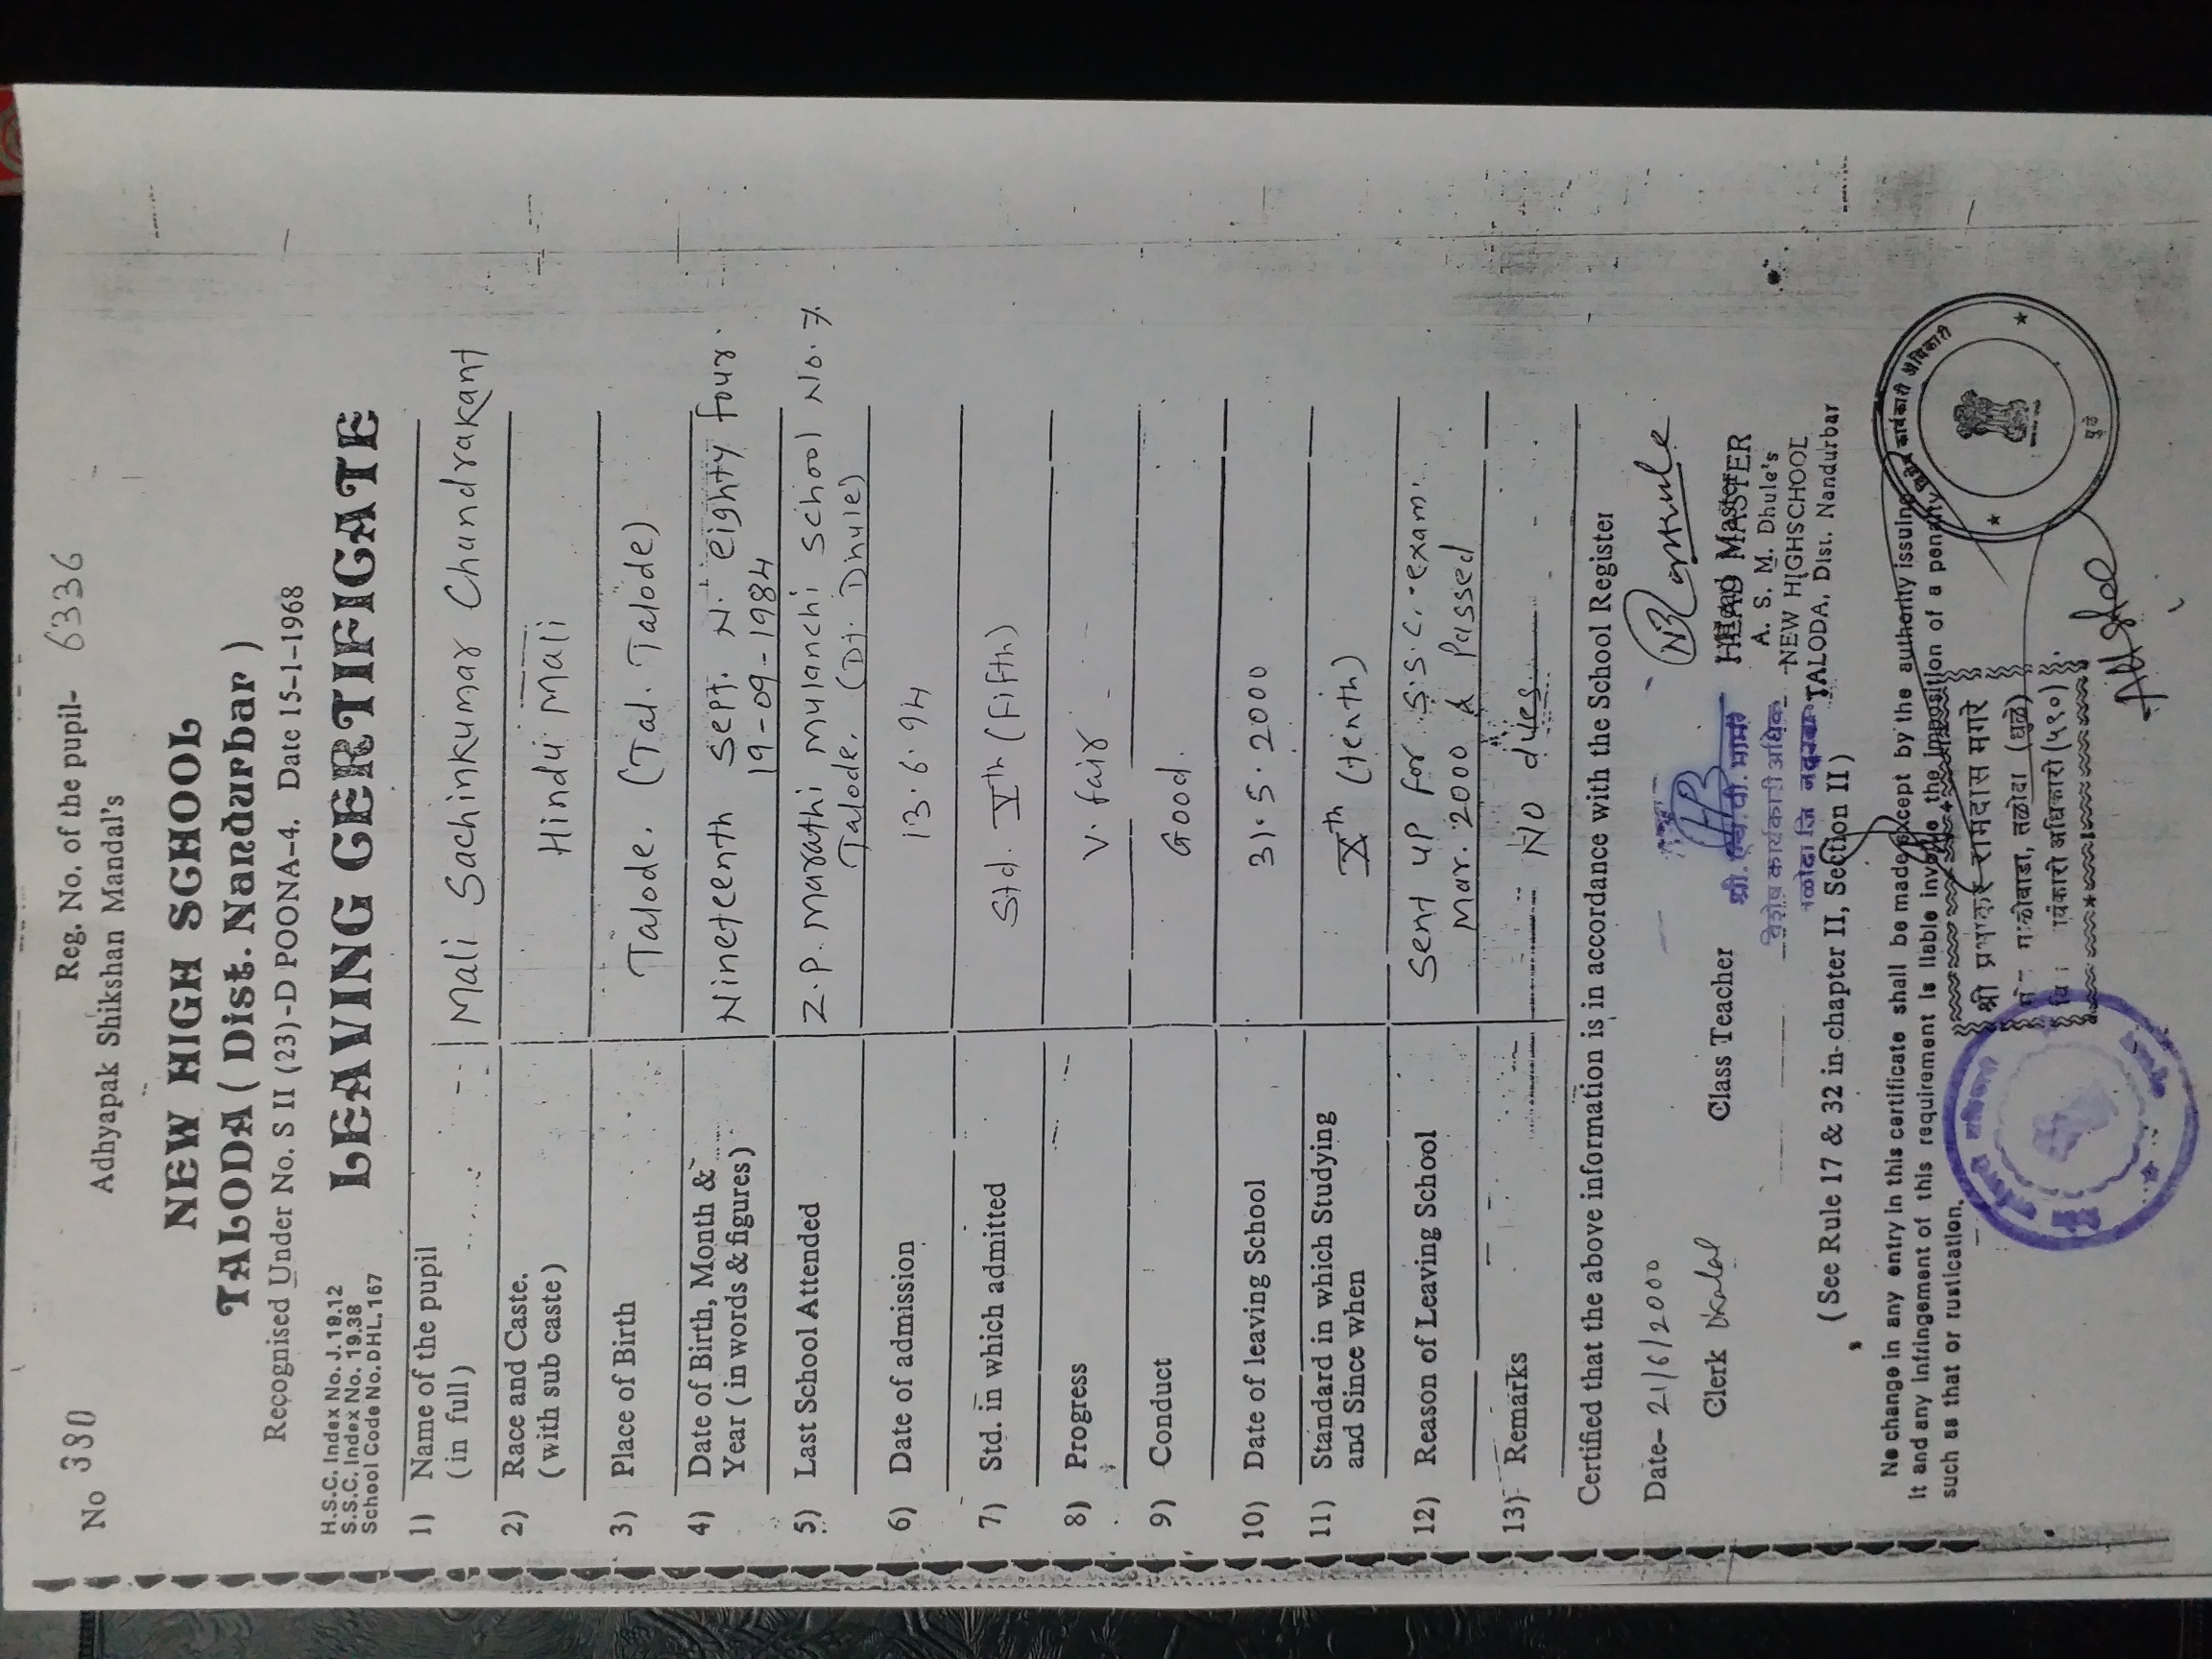 No 380
Reg. No. of the pupil- 6336
Adhyapak Shikshan Mandal's
NEW HIGH SCHOOL
TALODA ( Dist. Nandurbar )
Recognised Under No. S II (23)-D POONA-4. Date 15-1-1968
H.S.C. Index No. J. 19.12
S.S.C. Index No. 19.38
School Code No. DHL. 167
LEAVING CERTIFICATE
1) Name of the pupil (in full) Mali Sachinkumar Chandrakant
2) Race and Caste. (with sub caste) Hindu Mali
3) Place of Birth Talode. (Tal. Talode)
4) Date of Birth, Month & Nineteenth Sept. N. eighty four.
Year ( in words & figures) 19-09-1984
5) Last School Attended Z.P. Marathi Mulanchi School No. 7
Talode. (Dt. Dhule)
6) Date of admission 13.6.94
7) Std. in which admitted Std. Vth (Fifth)
8) Progress V. fair
9) Conduct Good.
10) Date of leaving School 31.5.2000
11) Standard in which Studying and Since when Xth (tenth)
12) Reason of Leaving School Sent up for S.S.C. exam.
Mar. 2000 & Passed
13) Remarks No dues
Certified that the above information is in accordance with the School Register
Date- 21/6/2000
Clerk
Class Teacher
HEAD MASTER
A. S. M. Dhule's
NEW HIGHSCHOOL
TALODA, Dist. Nandurbar
विशेष कार्यकारी अधिकारी
( See Rule 17 & 32 in chapter II, Section II )
No change in any entry in this certificate shall be made except by the authority issuing
it and any infringement of this requirement is liable involve the imposition of a penalty
such as that or rustication.
श्री प्रभाकर रामदास मगरे
तळोदा (धुळे)
कार्यकारी अधिकारी
धुळे